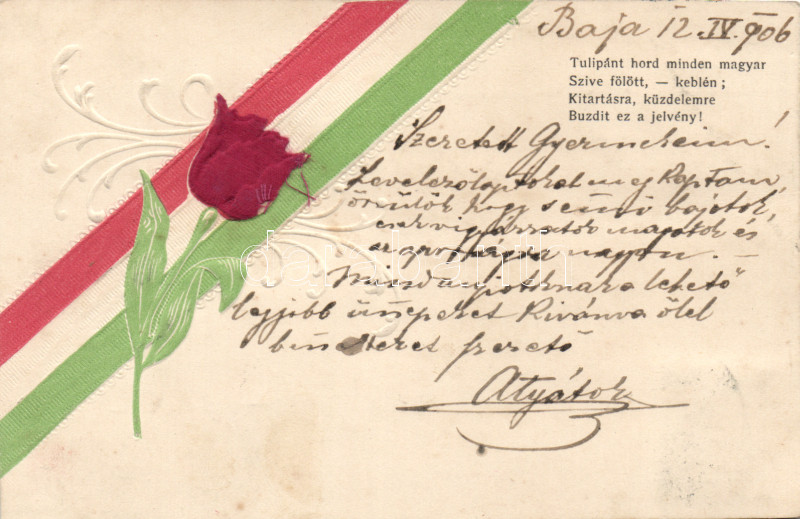 Baja 12 IV. 906
Tulipánt hord minden magyar
Szive fölött, — keblén;
Kitartásra, küzdelemre
Buzdit ez a jelvény!
Szeretett Gyermekeim!
Levelezőlaptokat megkaptam,
örülök hogy semmi bajotok,
csak vigyázzatok magatokra és
nagyon. —
Mindanyiotoknak a lehető
legjobb ünnepeket kivánva ölel
benneteket szerető
Atyátok
darabanth